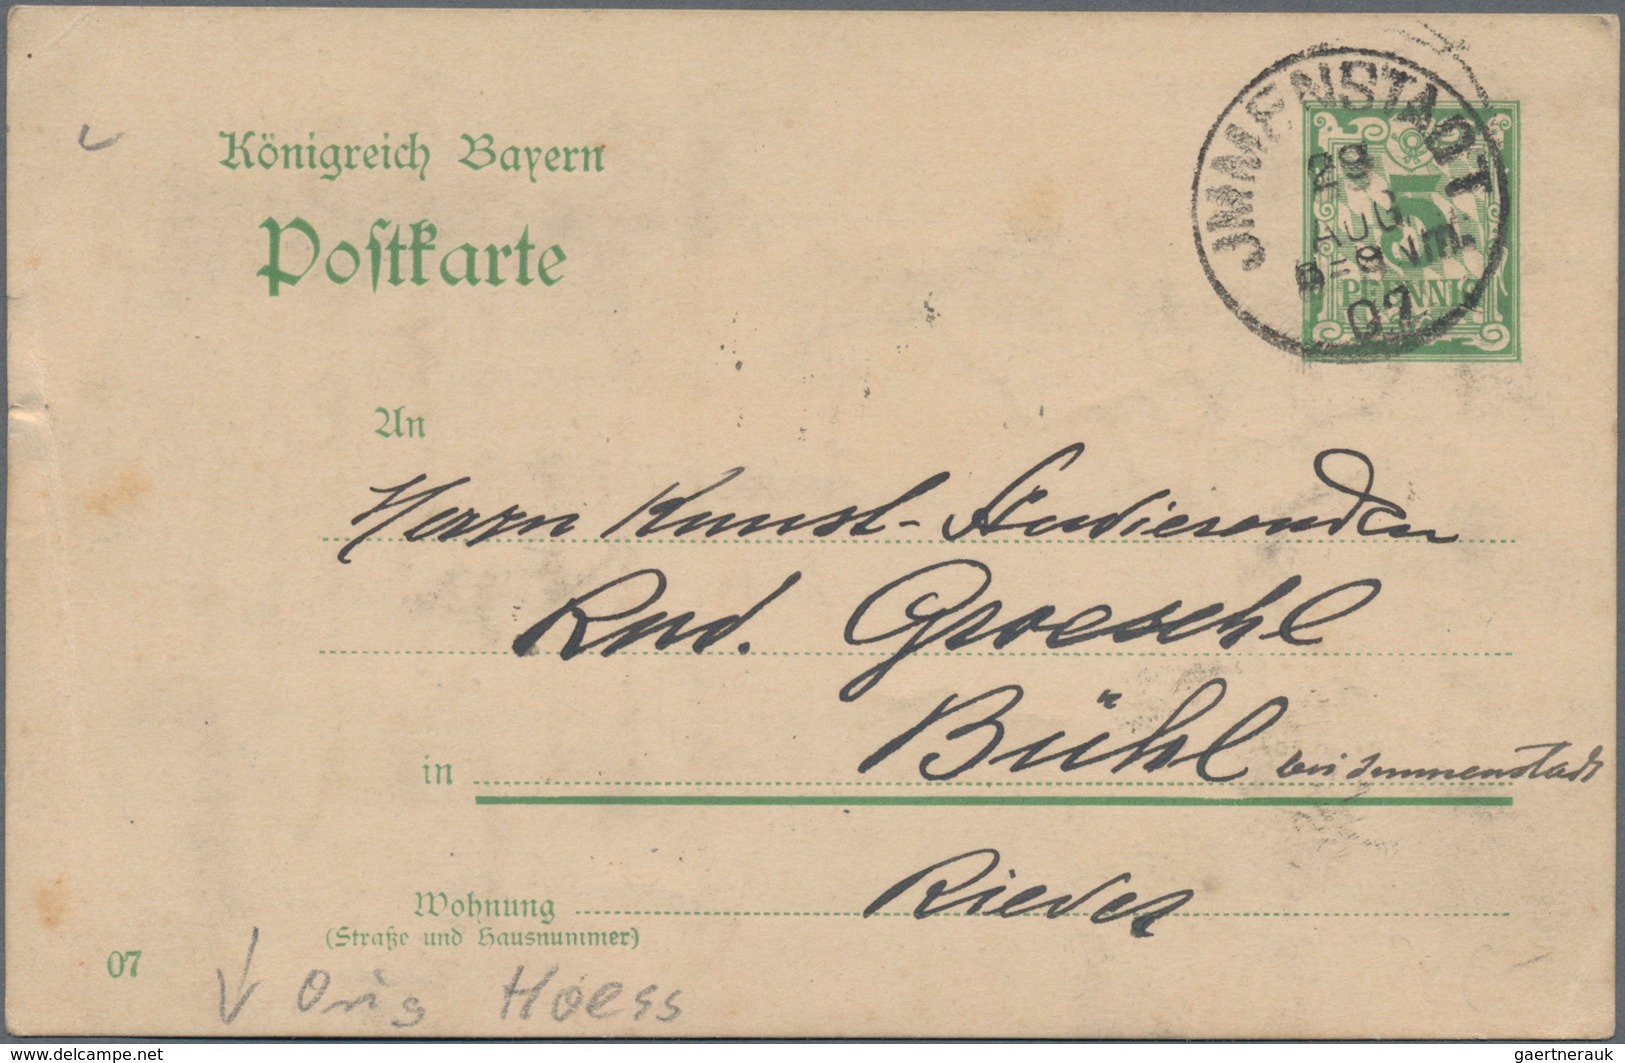 Königreich Bayern
Postkarte
JMMENSTADT
29
AUG.
8=9 Nm.
07
5
PFENNIG
An
Herrn Kunst-Studierenden
Rud. Groeschl
in Bühl bei Immenstadt
Wohnung Rieder
(Straße und Hausnummer)
07
Orig Hoess
www.delcampe.net
gaertnerauk